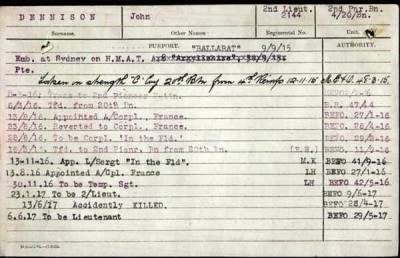 DENNISON John 2nd Lieut. 2144 2nd Pnr.Bn. 4/20/Bn.
Surname. Regimental No. Unit.
PURPORT. "BALLARAT" 9/9/15 AUTHORITY.
Emb. at Sydney on H.M.A.T.
Pte.
Taken on strength "C" Coy 20th Bn from 4th Reinfs 12-11-15
to 2nd Pioneer
6/3/16. Tfd. from 20th Bn. B.R. 47/4
13/8/16. Appointed A/Corpl., France. BEFO. 27/1-16
23/8/16. Reverted to Corpl., France. BEFO.
28/8/16. To be Corpl. "In the Fld". BEFO.
Tfd. to 2nd Pionr. Bn from 20th Bn.
13-11-16. App. L/Sergt "In the Fld". M.K BEFO 41/9-16
13.8.16 Appointed A/Cpl. France LH BEFO 27/1-16
30.11.16 To be Temp. Sgt. LH BEFO 42/5-16
23.1.17 To be 2/Lieut. BEFO 9/6-17
13/6/17 Accidently KILLED. BEFO 28/4-17
6.6.17 To be Lieutenant BEFO 29/5-17